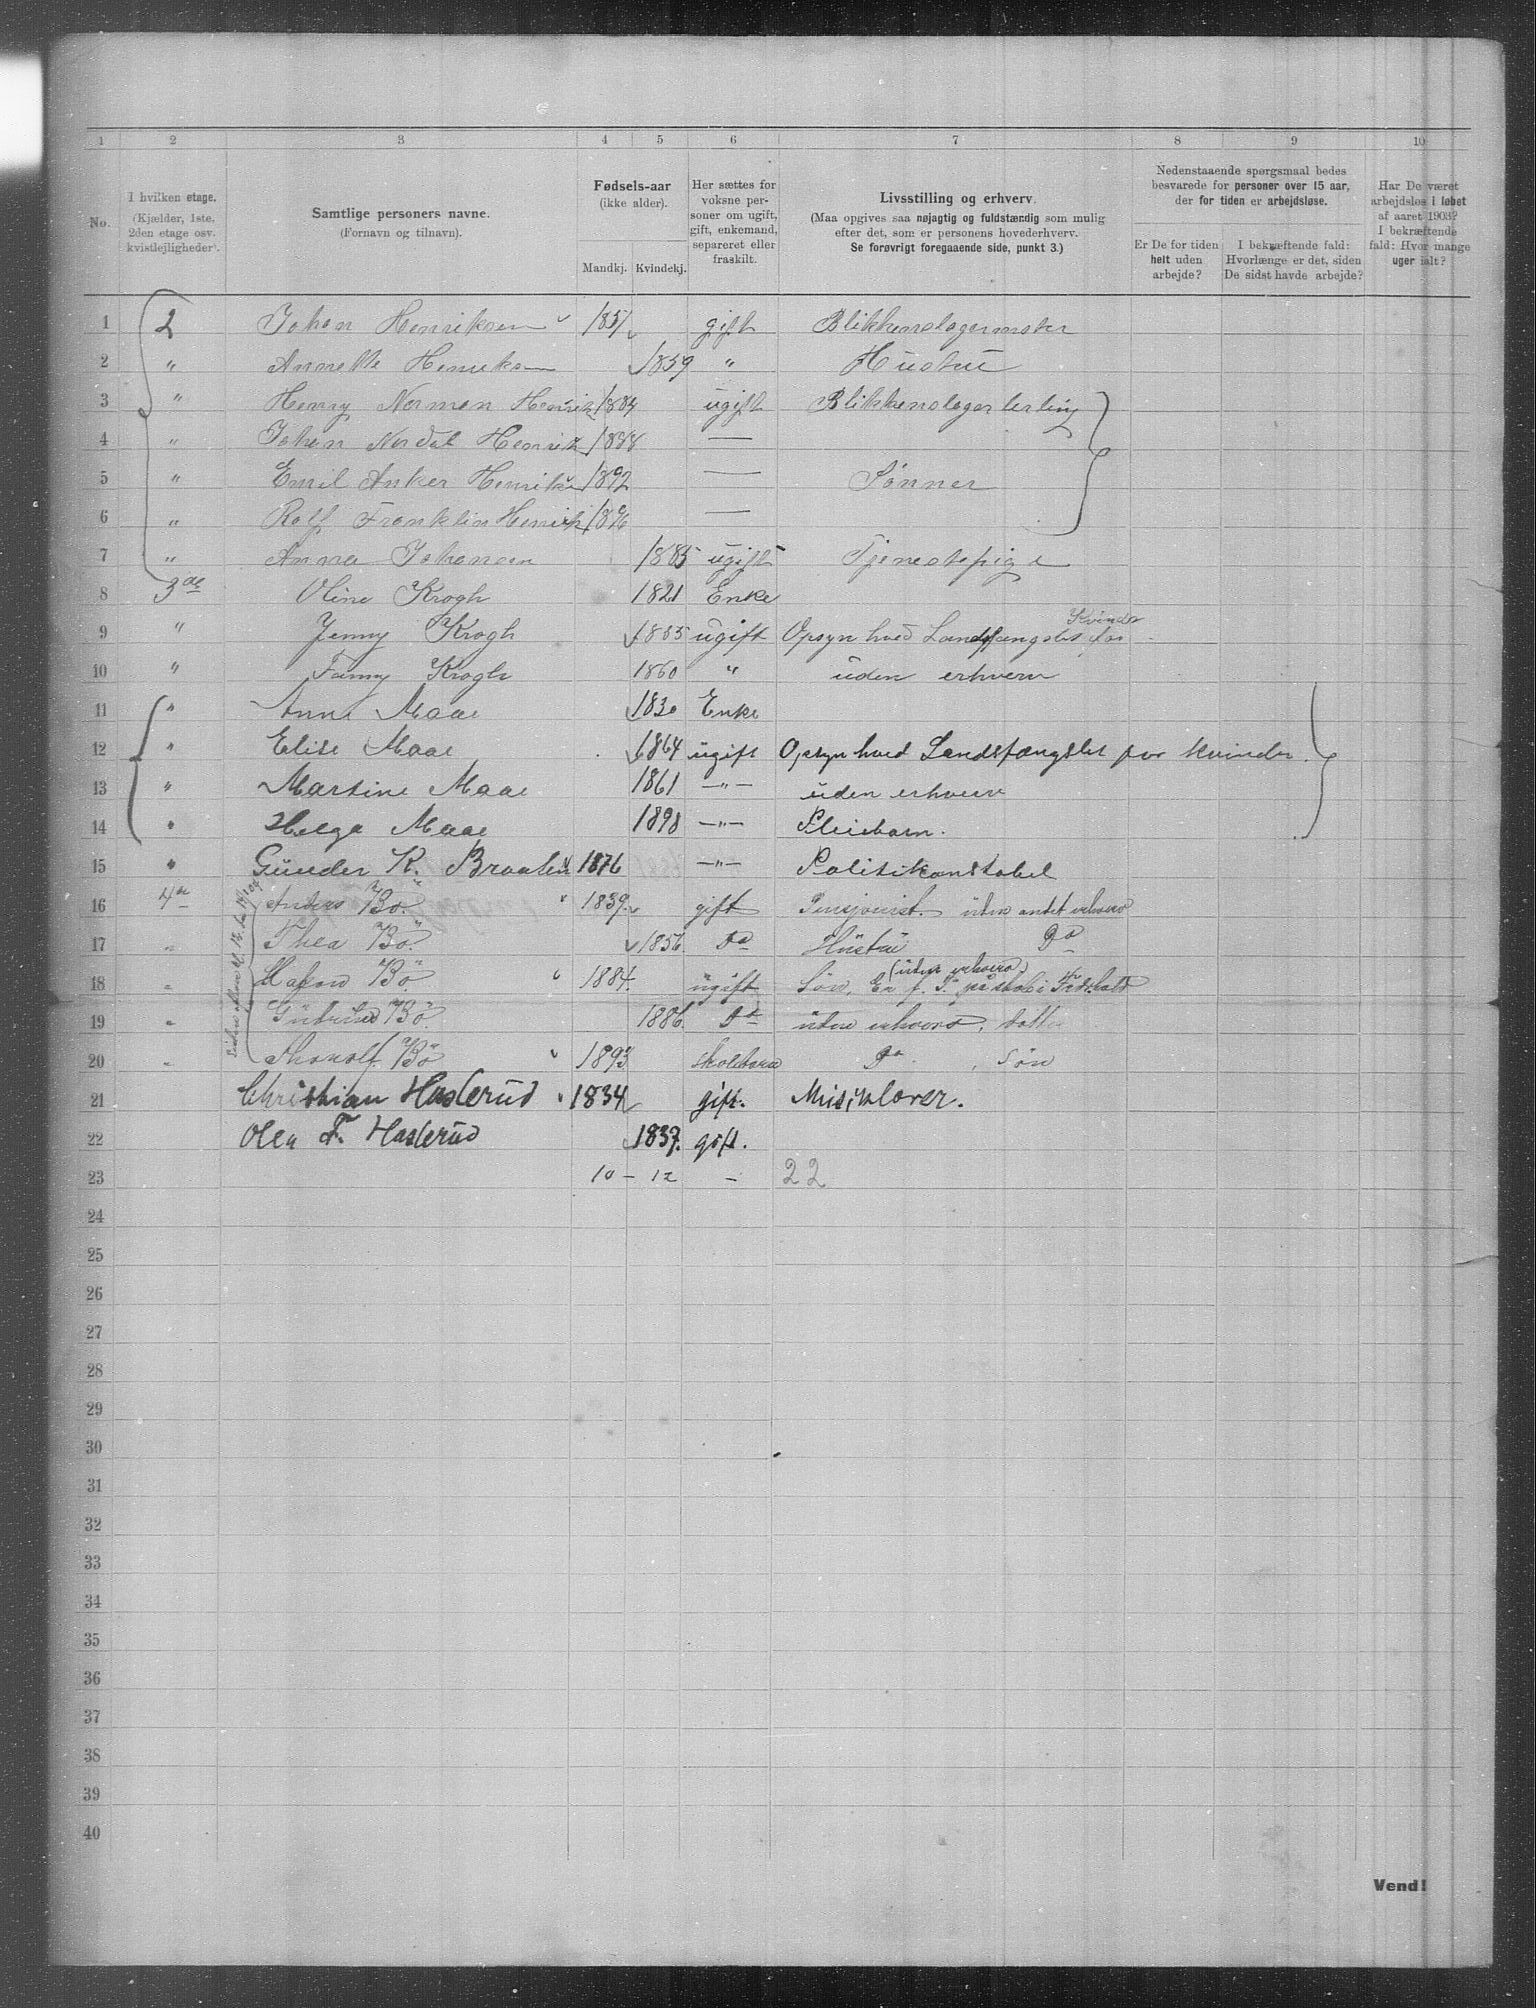 1 2 3 4 5 6 7 8 9 10
No.
I hvilken etage.
(Kjælder, 1ste.
2den etage osv.
kvistlejligheder).
Samtlige personers navne.
(Fornavn og tilnavn).
Fødsels-aar
(ikke alder).
Mandkj. Kvindekj.
Her sættes for
voksne per-
soner om ugift,
gift, enkemand,
separeret eller
fraskilt.
Livsstilling og erhverv.
(Maa opgives saa nøjagtig og fuldstændig som mulig
efter det, som er personens hovederhverv.
Se forøvrigt foregaaende side, punkt 3.)
Nedenstaaende spørgsmaal bedes
besvarede for personer over 15 aar,
der for tiden er arbejdsløse.
Er De for tiden
helt uden
arbejde?
I bekræftende fald:
Hvorlænge er det, siden
De sidst havde arbejde?
Har De været
arbejdsløs i løbet
af aaret 1903?
I bekræftende
fald: Hvor mange
uger ialt?
1 2 Johan Henriksen 1851 gift Blikkenslagermster
2 " Annette Henriksen 1859 " Hustru
3 " Henry Norman Henrik 1884 ugift Blikkenslagerlerling
4 " Johan Nordal Henrik 1888 —
5 " Emil Anker Henriks 1892 — Sønner
6 " Rolf Franklin Henrik 1896 —
7 " Anna Johansen 1885 ugift Tjenestepige
8 3de Oline Krogh 1821 Enke
9 " Jenny Krogh 1855 ugift Opsyn hved Landsfængslet for Kvinder
10 " Fanny Krogh 1860 " uden erhverv
11 " Anne Maae 1830 Enke
12 " Elise Maae 1864 ugift Opsyn hved Landsfængslet for kvinder.
13 " Martine Maae 1861 —"— uden erhverv
14 " Helga Maae 1898 —"— Pleiebarn.
15 " Gunder K. Braaten 1876 —"— Politikonstabel
16 4de Anders Bö. 1839. gift Pensjonist. uden andet erhverv
17 " Thea Bö. 1856. Do Hustru Do
18 " Hakon Bö 1884. ugift Sön. (uden erhverv)
19 " Bö. 1886. Do uden erhverv, datter
20 " Thoralf. Bö 1893 skolebarn Do. , Sön
21 Christian Haslerud 1834 gift. Musiklærer.
22 Olea F. Haslerud 1837. gift.
23 10 — 12 — 22
24
25
26
27
28
29
30
31
32
33
34
35
36
37
38
39
40
Vend!